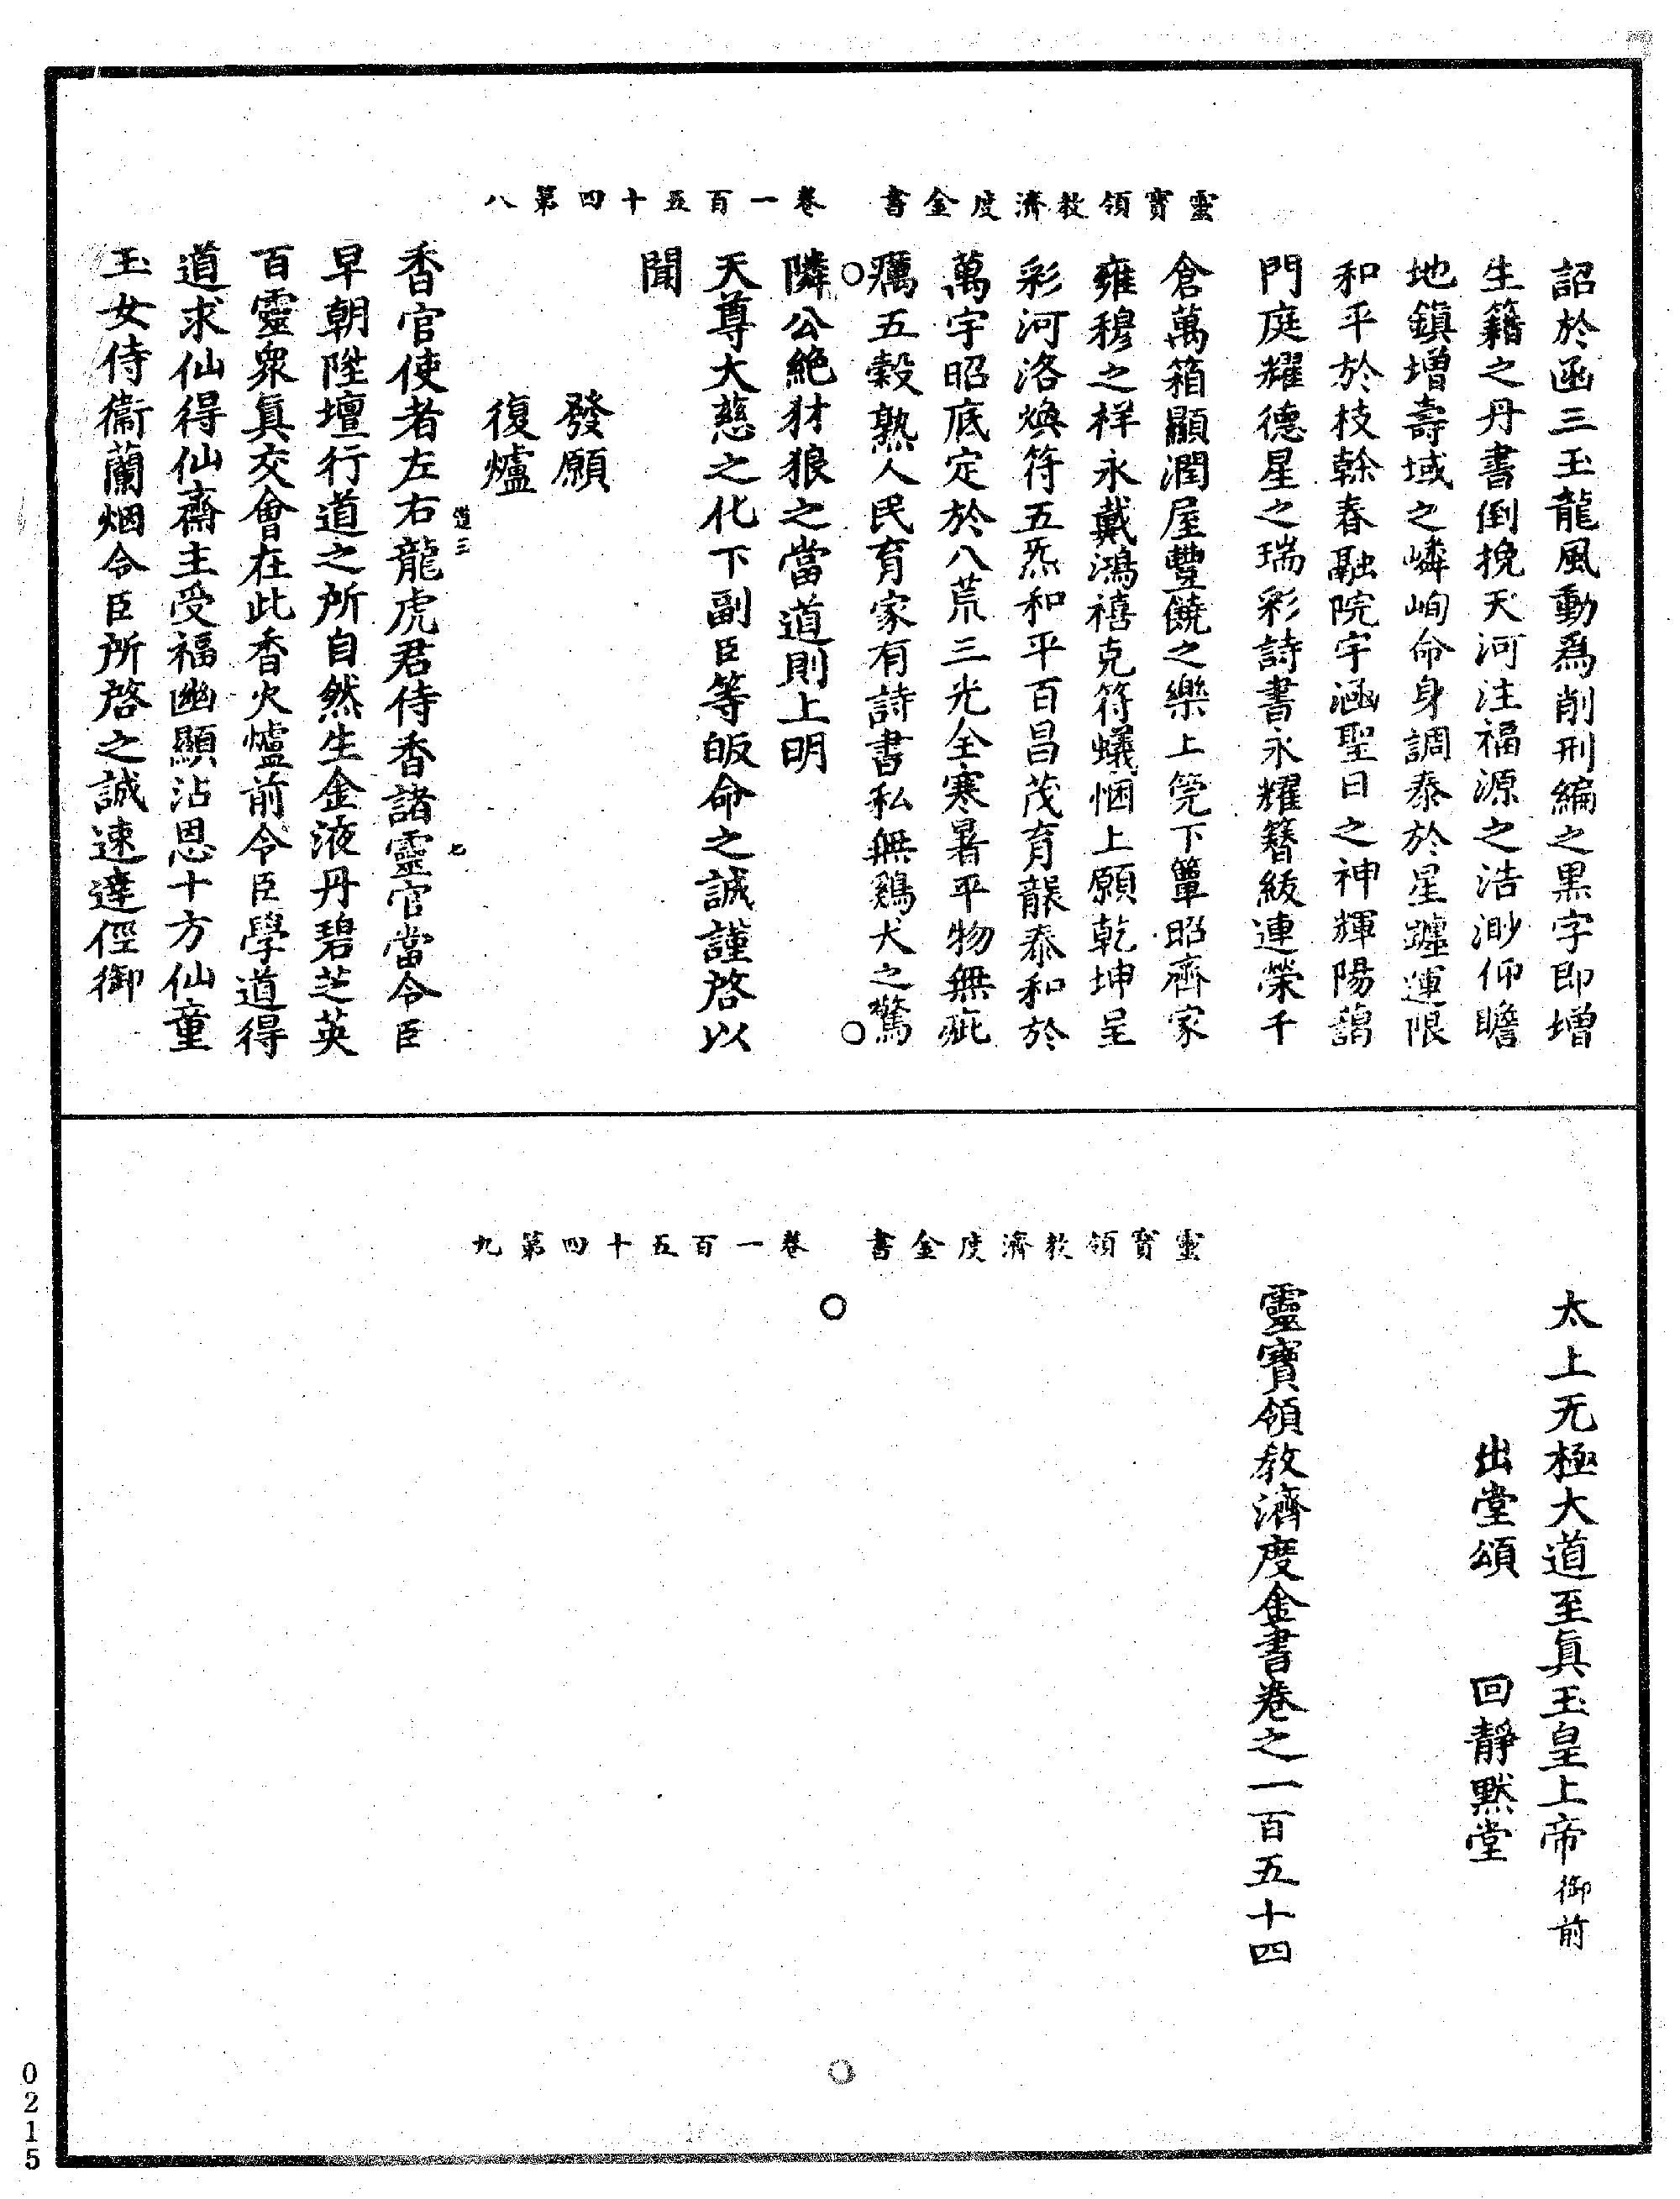 靈寶領教濟度金書　卷一百五十四第八
詔於函三玉龍風動爲削刑編之黑字即增
生籍之丹書倒挽天河注福源之浩渺仰瞻
地鎮增壽域之嶙峋命身調泰於星躔運限
和平於枝幹春融院宇涵聖日之神輝陽藹
門庭耀德星之瑞彩詩書永耀簪紱連榮千
倉萬箱顯潤屋豐饒之樂上筦下簟昭齊家
雍穆之祥永戴鴻禧克符蟻悃上願乾坤呈
彩河洛煥符五炁和平百昌茂育龍泰和於
萬宇昭底定於八荒三光全寒暑平物無疵
癘五穀熟人民育家有詩書私無鷄犬之驚
隣公絶犲狼之當道則上明
天尊大慈之化下副臣等皈命之誠謹啓以
聞
發願
復爐
道三　七
香官使者左右龍虎君侍香諸靈官當令臣
早朝陞壇行道之所自然生金液丹碧芝英
百靈衆眞交會在此香火爐前令臣學道得
道求仙得仙齋主受福幽顯沾恩十方仙童
玉女侍衞蘭烟令臣所啓之誠速達徑御
靈寶領教濟度金書　卷一百五十四第九
太上无極大道至眞玉皇上帝御前
出堂頌　回靜默堂
靈寶領教濟度金書卷之一百五十四
0215